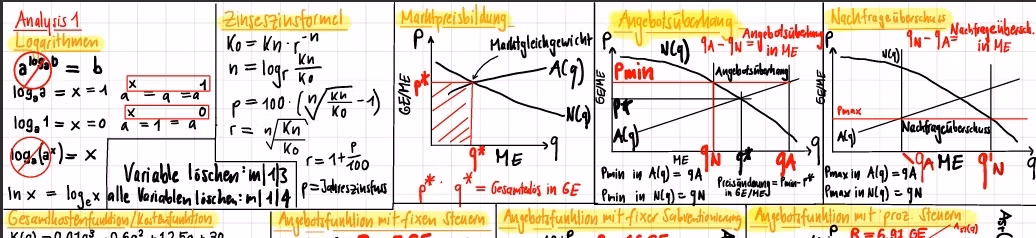 Analysis 1
Logarithmen
a^log_a b = b
log_a a = x = 1
a^x = a = a^1
log_a 1 = x = 0
a^x = 1 = a^0
log_a(a^x) = x
ln x = log_e x
Variable löschen: m|1|3
alle Variablen löschen: m|1|4
Zinseszinsformel
K0 = Kn · r^-n
n = log_r Kn/K0
p = 100 · (n√Kn/K0 - 1)
r = n√Kn/K0
r = 1 + p/100
p = Jahreszinsfuss
Marktpreisbildung
P
GE/ME
p*
Marktgleichgewicht
A(q)
N(q)
q* ME q
p* · q* = Gesamterlös in GE
Angebotsüberhang
qA - qN = Angebotsüberhang in ME
P
GE/ME
N(q)
Pmin
Angebotsüberhang
p*
A(q)
ME qN q* qA q
Pmin in A(q) = qA
Pmin in N(q) = qN
Preisänderung = Pmin - p*
in GE/ME
Nachfrageüberschuss
qN - qA = Nachfrageübersch. in ME
P
GE/ME
N(q)
Pmax
A(q)
Nachfrageüberschuss
qA ME qN q
Pmax in A(q) = qA
Pmax in N(q) = qN
Gesamtkostenfunktion/Kostenfunktion
Angebotsfunktion mit fixen Steuern
Angebotsfunktion mit fixer Subventionierung
Angebotsfunktion mit proz. Steuern
P
R = 6.91 GE